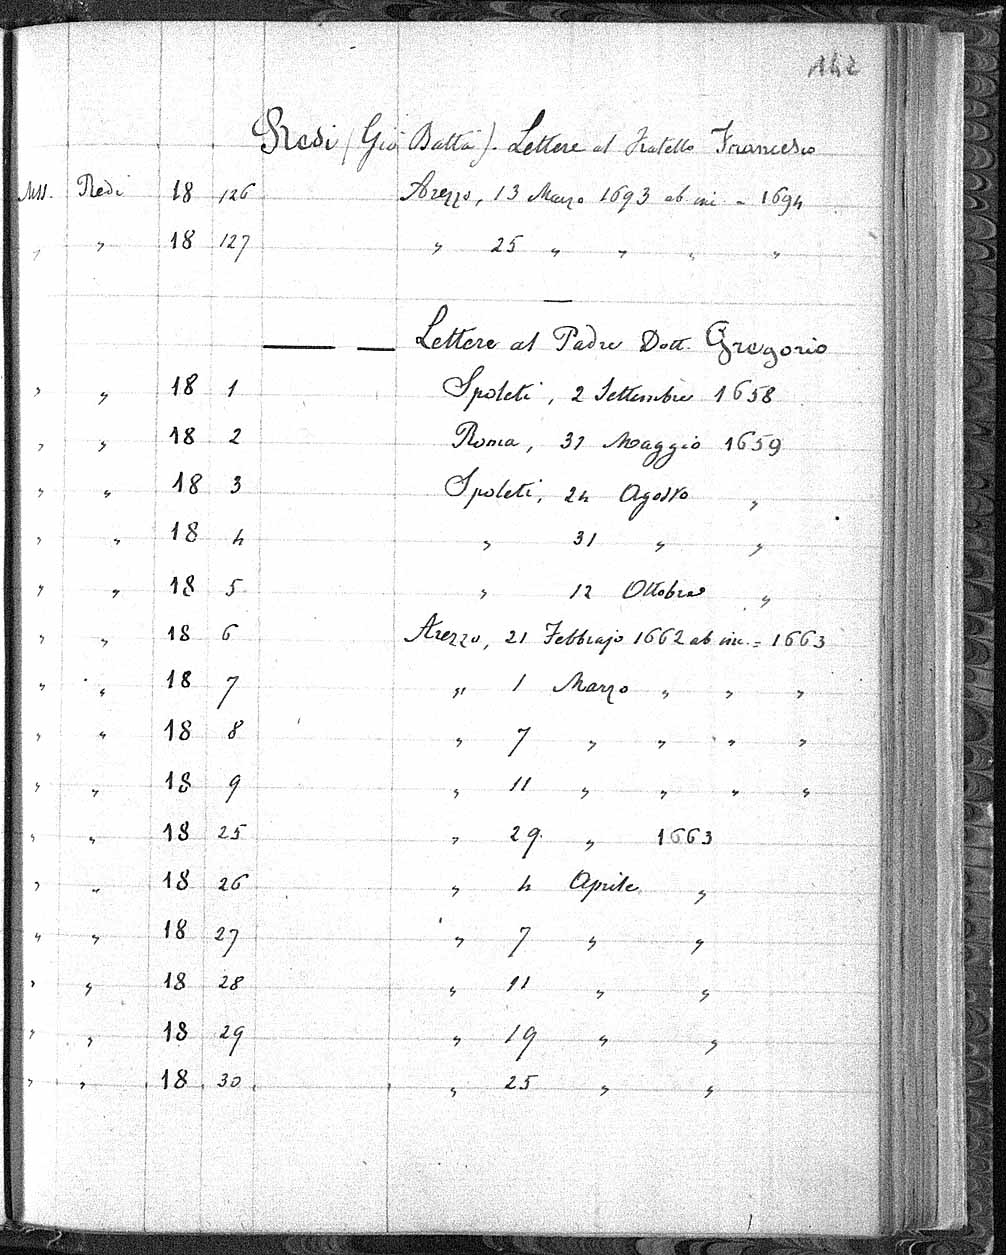 142
Redi (Gio Batta). Lettere al Fratello Francesco
Mss. Redi 18 126 Arezzo, 13 Marzo 1693 ab inc. = 1694
" " 18 127 " 25 " " " "
—
—— — Lettere al Padre Dott. Gregorio
" " 18 1 Spoleti, 2 Settembre 1658
" " 18 2 Roma, 31 Maggio 1659
" " 18 3 Spoleti, 24 Agosto "
" " 18 4 " 31 " "
" " 18 5 " 12 Ottobre "
" " 18 6 Arezzo, 21 Febbrajo 1662 ab inc. = 1663
" " 18 7 " 1 Marzo " " "
" " 18 8 " 7 " " " "
" " 18 9 " 11 " " " "
" " 18 25 " 29 " 1663
" " 18 26 " 4 Aprile "
" " 18 27 " 7 " "
" " 18 28 " 11 " "
" " 18 29 " 19 " "
" " 18 30 " 25 " "